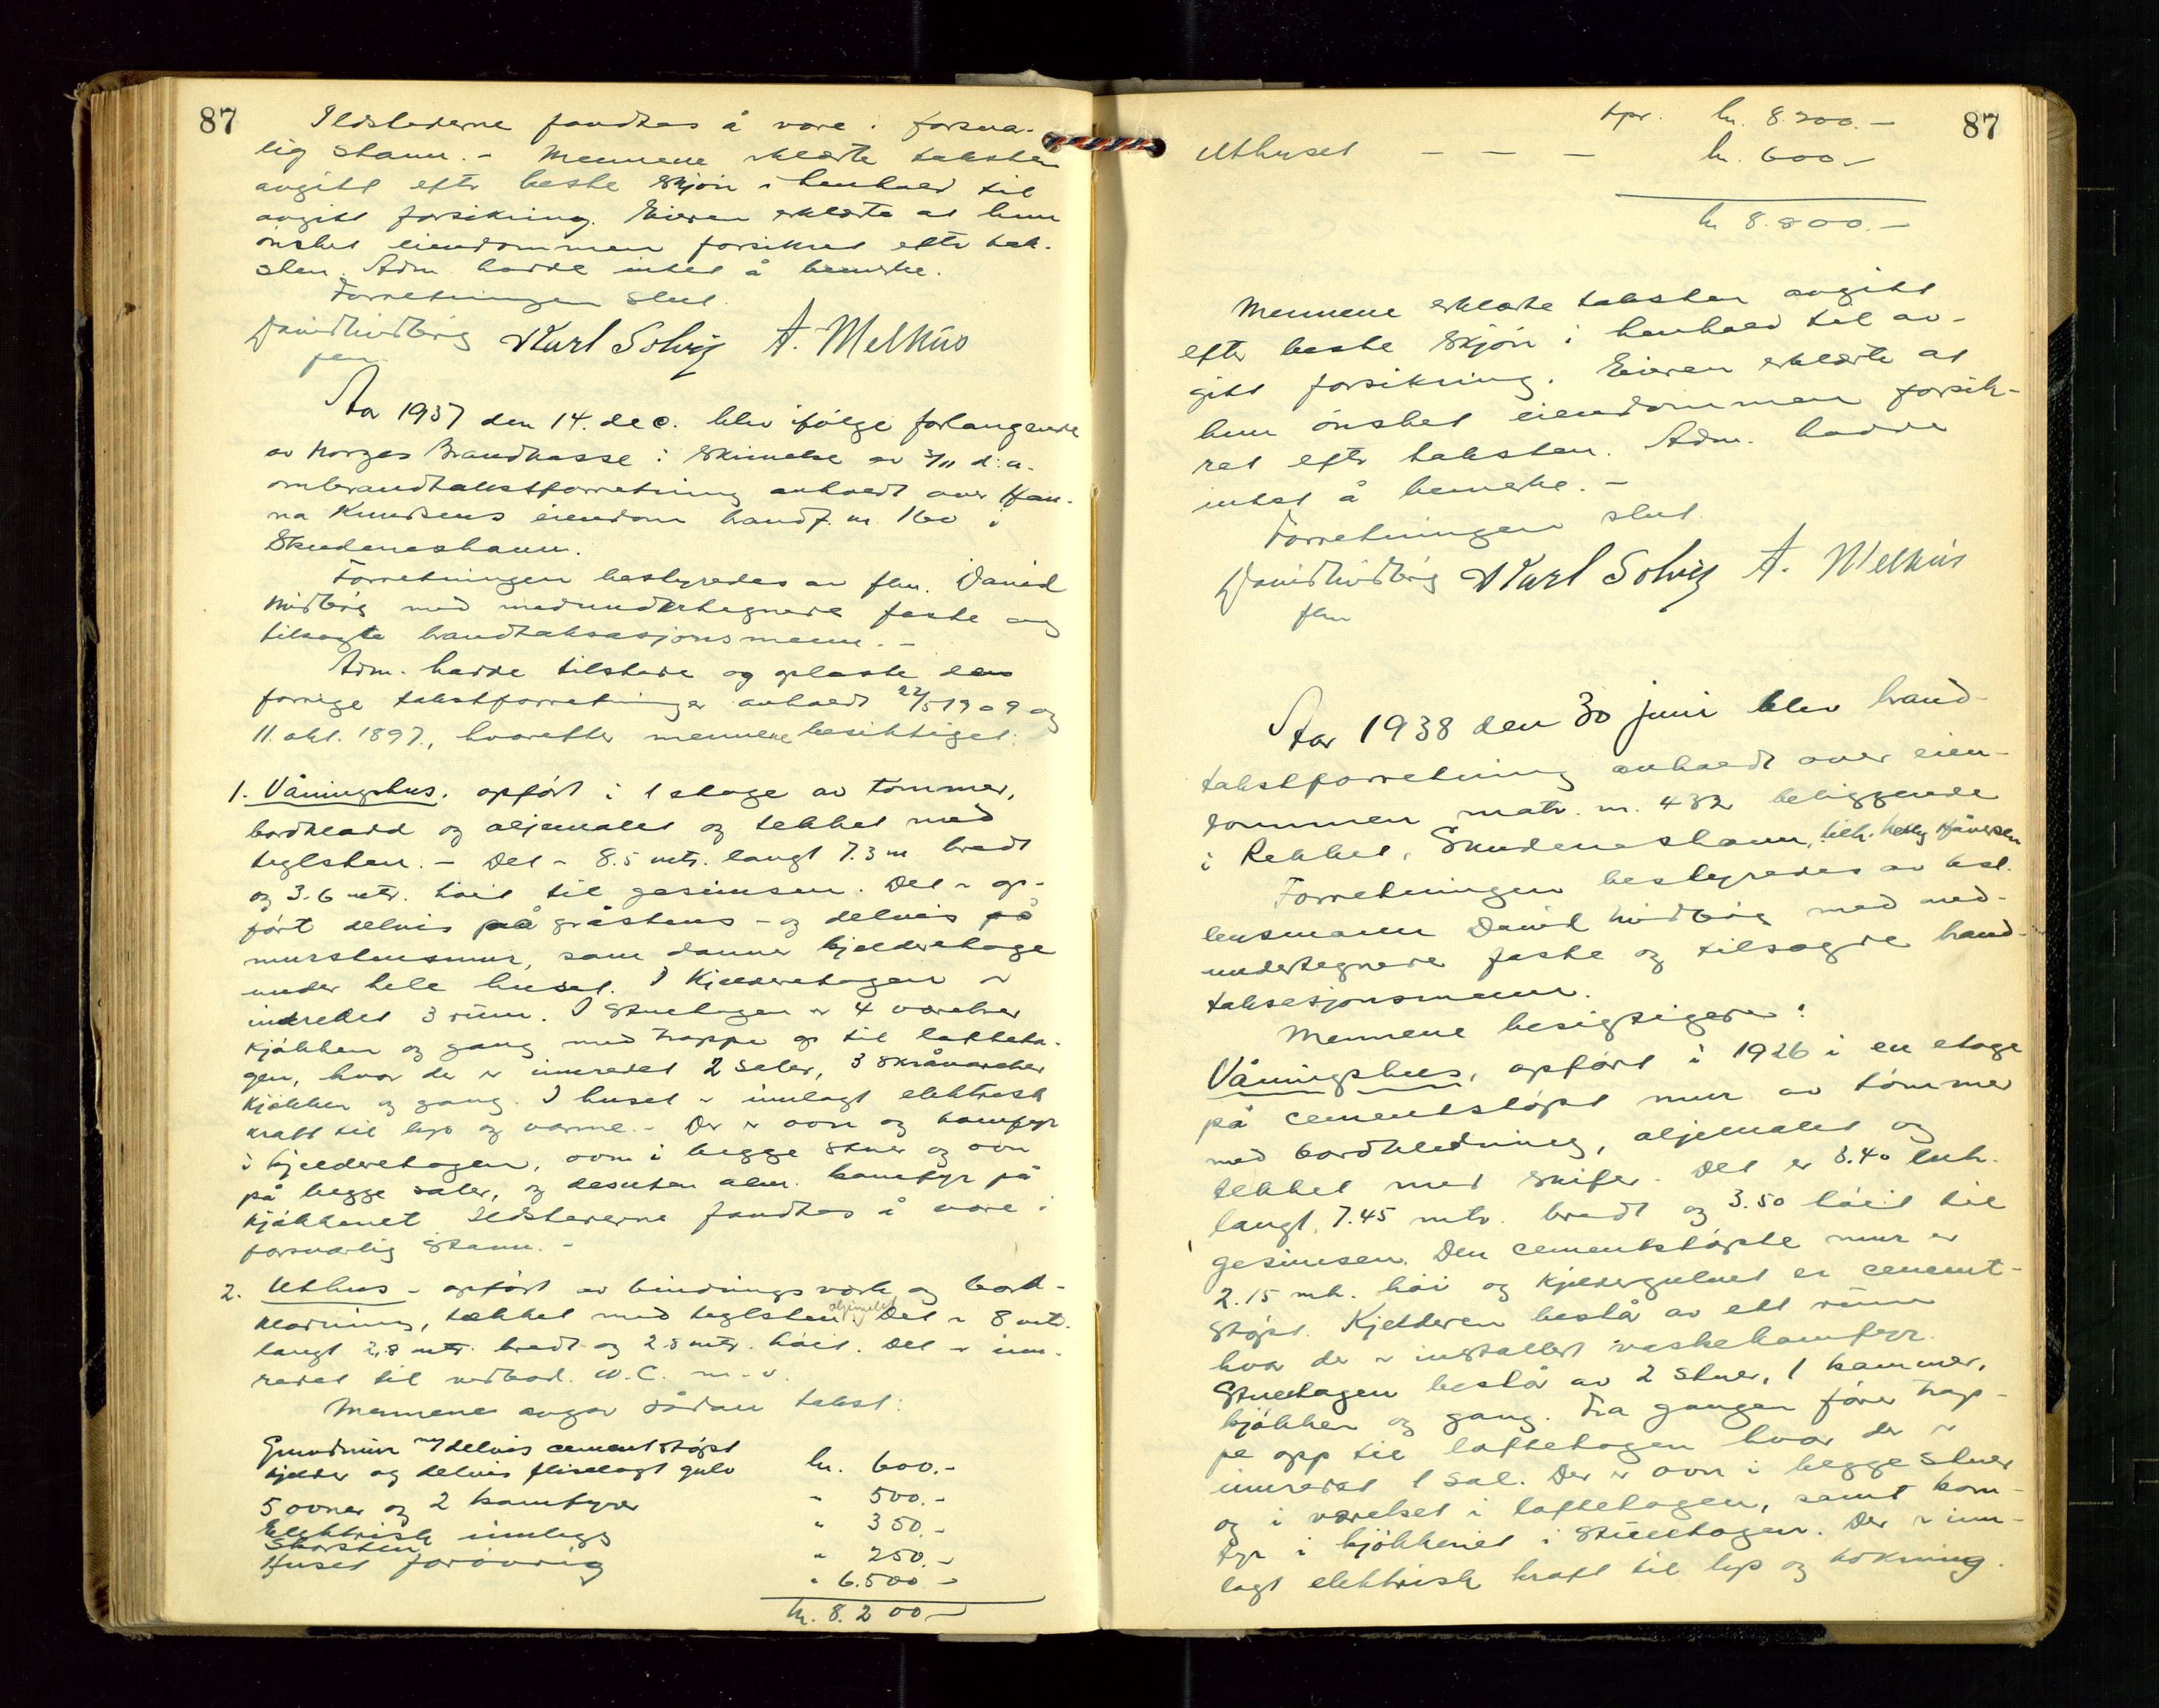 87
Ildstederne fandtes å være i forsva-
lig stann. - Mennene erklærte taksten
avgitt efter beste skjön i henhold til
avgitt forsikring. Eieren erklærte at hun
önsket eiendommen forsikret efter tak-
sten. Adm. hadde intet å bemerke.
Forretningen slut.
Karl Solvig A. Melhus
Aar 1937 den 14. dec. blev ifölge forlangende
av Norges Brandkasse i skrivelse av 3/11 d.a.
ombrandtakstforretning avholdt over Han-
na Knudsens eiendom brandf. nr. 160 i
Skudeneshavn.
Forretningen bestyredes av fhm. David
med medundertegnede faste og
tilsagte brandtaksasjonsmenn. -
Adm. hadde tilstede og oplæste den
forrige takstforretninger avholdt 22/5 1909 og
11. okt. 1897., hvorefter mennene besiktiget:
1. Våningshus. opfört i 1 etage av tömmer,
bordklædd og oljemalet og tekket med
teglsten. - Det er 8.5 mtr. langt 7.3 m bredt
og 3.6 mtr. höit til gesimsen. Det er op-
fört delvis på gråstens - og delvis på
murstensmur, som danner kjelderetage
under hele huset. I Kjelderetagen er
innredet 3 rum. I Stuetagen er 4 værelser
kjökken og gang med trappe op til lofteta-
gen, hvor der er innredet 2 saler, 3 skråværelser
kjökken og gang. I huset er innlagt elektrisk
kraft til lys og varme. - Der er ovn og komfyr
i kjelderetagen, ovn i begge stuer og ovn
på begge saler, og desuten alm. komfyr på
kjökkenet. Ildstederne fandtes å være i
forsvarlig stann. -
2. Uthus - opfört av bindingsverk og bord-
klædning, tækket med teglsten oljemalet. Det er 8 mtr.
langt 2,8 mtr. bredt og 2.8 mtr. höit. Det er inn-
redet til vedbod. W.C. m.v.
Mennene avgav sådan takst:
Grundmur m/delvis cementstöpt
kjelder og delvis fliselagt gulv kr. 600.-
5 ovner og 2 komfyrer " 500.-
Elektrisk innlegg " 350.-
Skorsten " 250.-
Huset forövrig " 6.500.-
kr. 8.200.-
87
tpr. kr. 8.200.-
Uthuset - - - kr. 600.-
kr 8.800.-
Mennene erklærte taksten avgitt
efter beste skjön i henhold til av-
gitt forsikring. Eieren erklærte at
hun önsket eiendommen forsik-
ret efter taksten. Adm. hadde
intet å bemerke. -
Forretningen slut.
Karl Solvig A. Melhus
fhm
Aar 1938 den 30 juni blev brand-
takstforretning avholdt over eien-
dommen matr. nr. 432 beliggende
i Rekket, Skudeneshavn, tilh.
Forretningen bestyredes av kst.
lensmann David med med-
undertegnede faste og tilsagte brand-
taksasjonsmenn.
Mennene besigtigede:
Våningshus, opfört i 1926 i en etage
på cementstöpt mur av tömmer
med bordkledning, oljemalet og
tekket med skifer. Det er 8.40 mtr.
langt, 7.45 mtr. bredt og 3.50 höit til
gesimsen. Den cementstöpte mur er
2.15 mtr. höi og kjeldergulvet er cement-
stöpt. Kjelderen består av ett rum
hvor der er installert vaskekomfyr.
Stuetagen består av 2 stuer, 1 kammer,
kjökken og gang. Fra gangen förer trap-
pe opp til loftetagen hvor der er
innredet 1 sal. Der er ovn i begge stuer
og i værelset i loftetagen, samt kom-
fyr i kjökkenet i stuetagen. Der er inn-
lagt elektrisk kraft til lys og kokning.